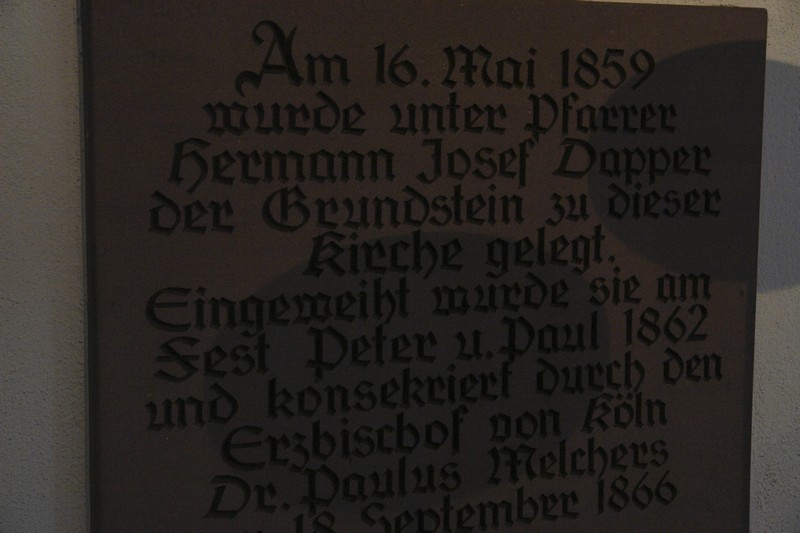 Am 16. Mai 1859
wurde unter Pfarrer
Hermann Josef Dapper
der Grundstein zu dieser
Kirche gelegt.
Eingeweiht wurde sie am
Fest Peter u. Paul 1862
und konsekriert durch den
Erzbischof von Köln
Dr. Paulus Melchers
18. September 1866